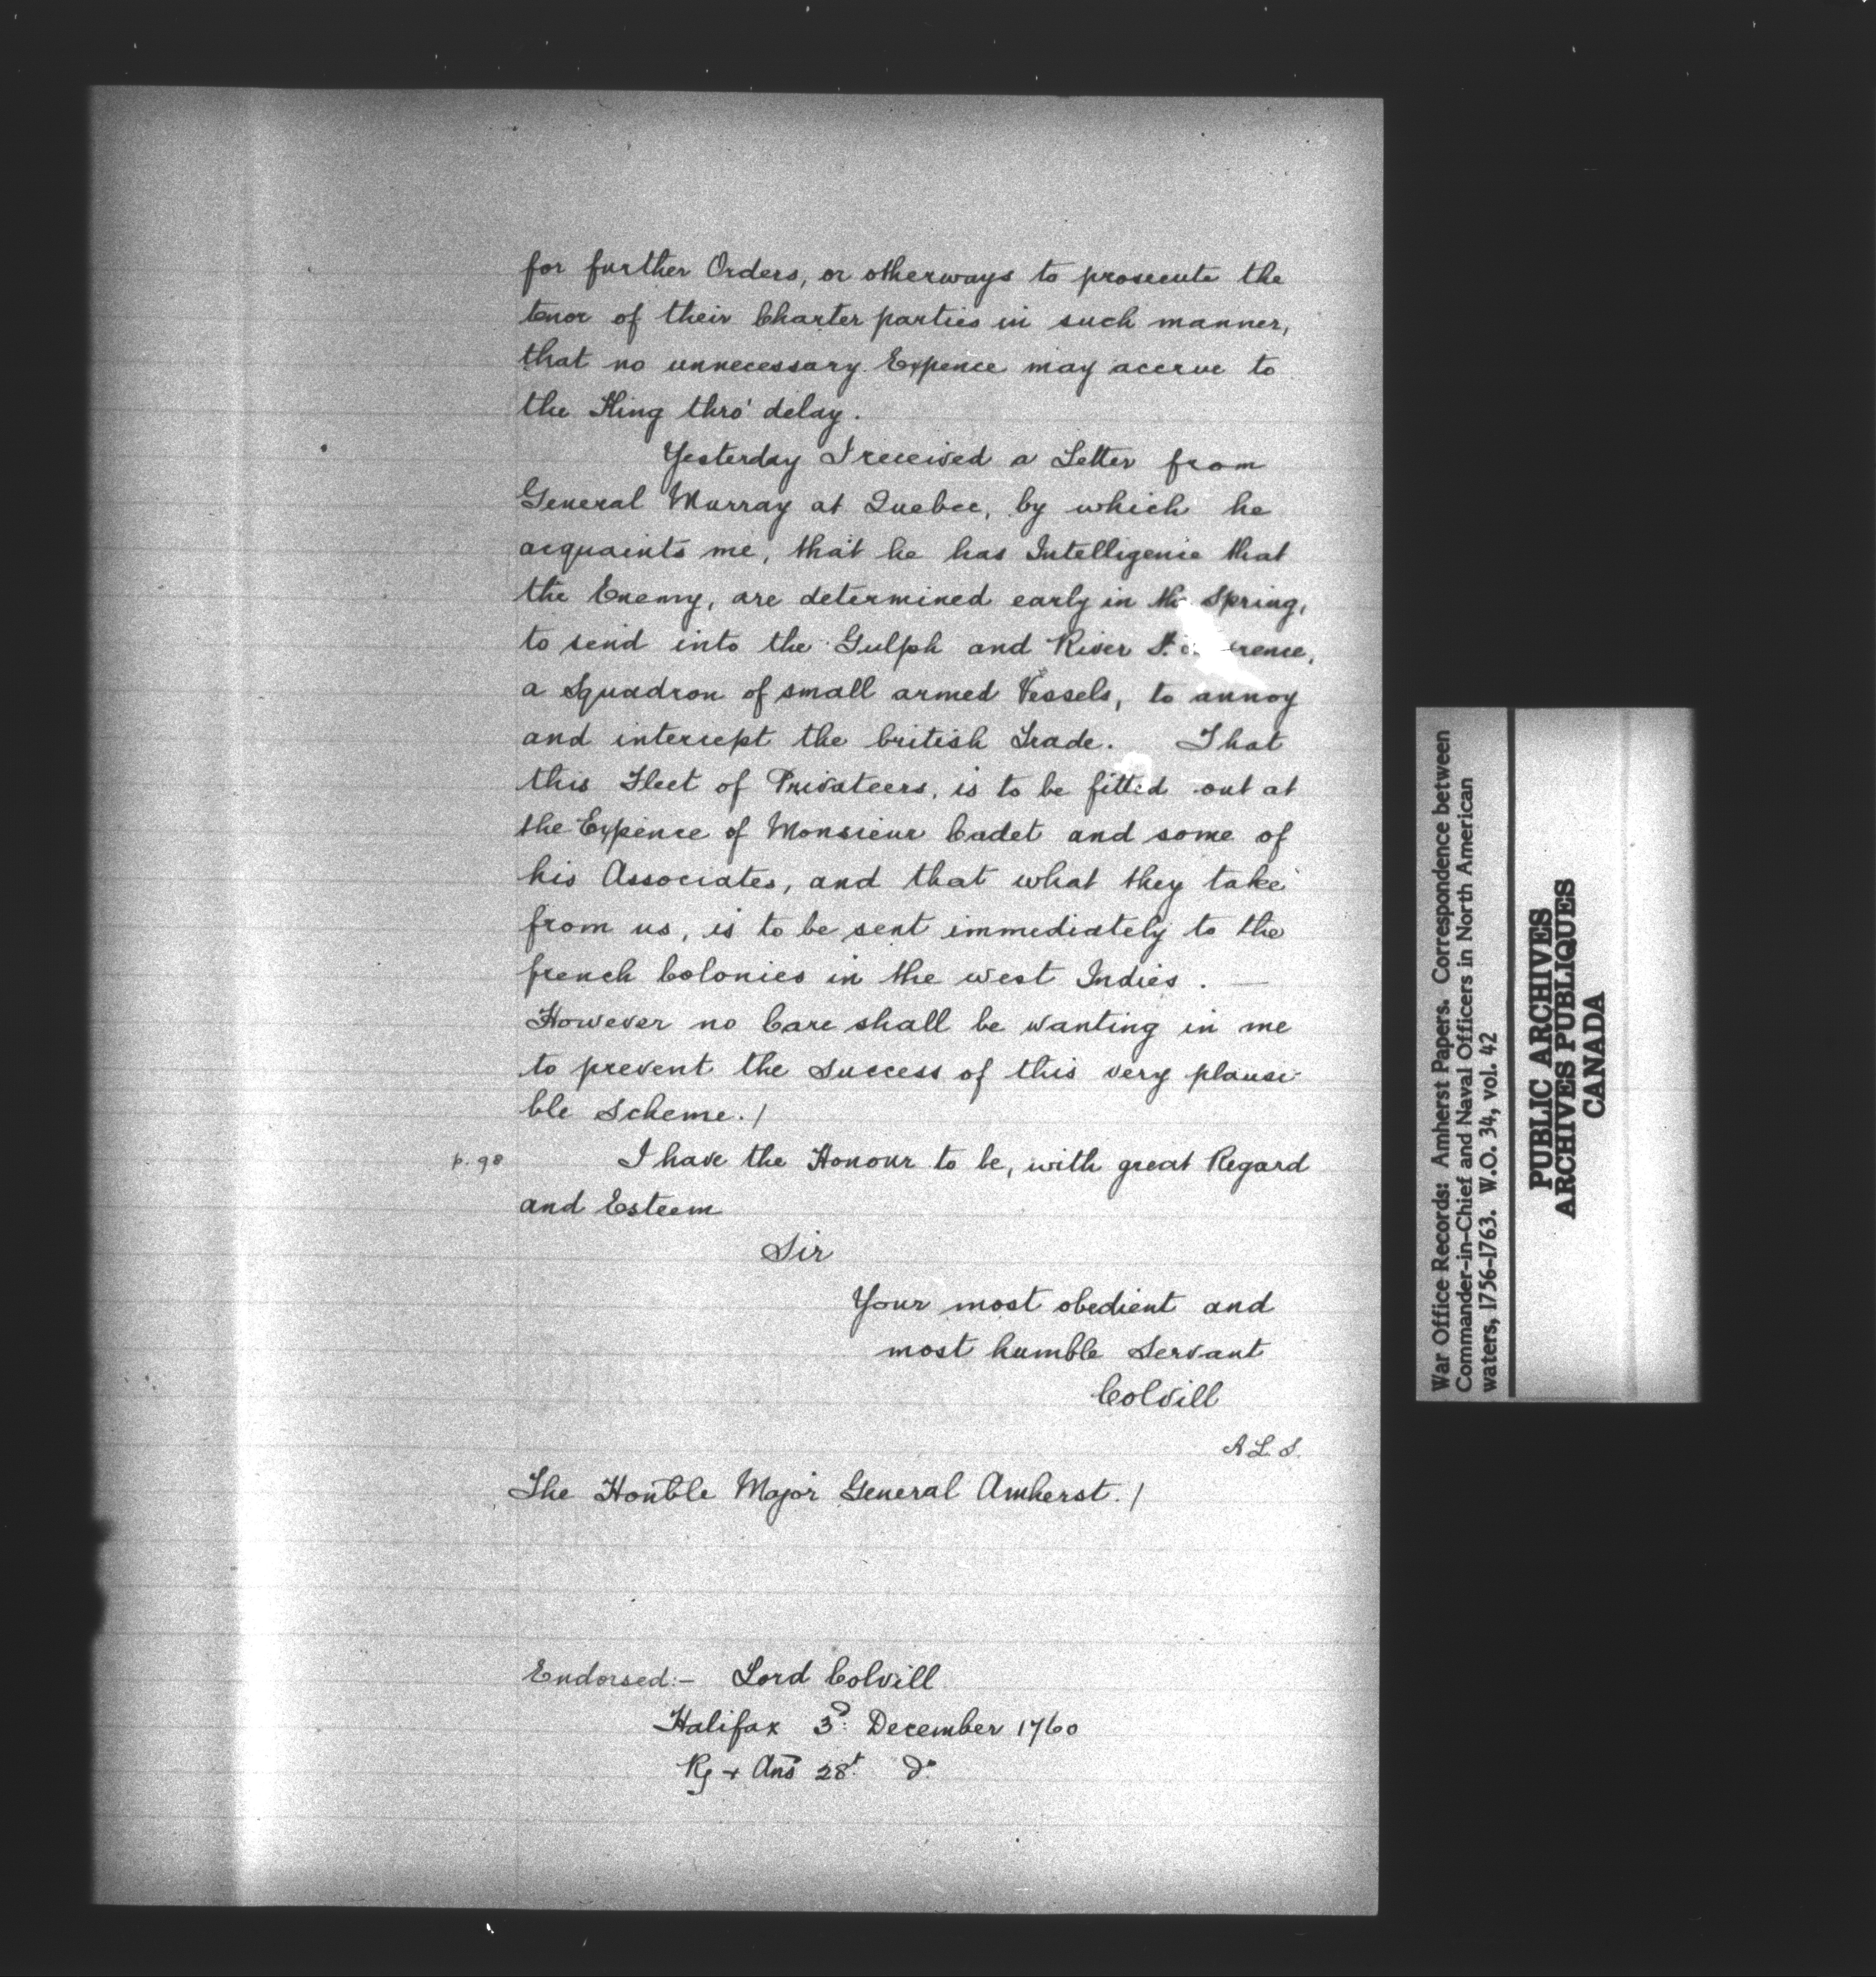 for further Orders, or otherways to prosecute the
tenor of their Charter parties in such manner,
that no unnecessary Expence may accrue to
the King thro' delay.
Yesterday I received a Letter from
General Murray at Quebec, by which he
acquaints me, that he has Intelligence that
the Enemy, are determined early in the Spring,
to send into the Gulph and River St. rence,
a Squadron of small armed Vessels, to annoy
and intercept the british Trade. That
this Fleet of Privateers, is to be fitted out at
the Expence of Monsieur Cadet and some of
his Associates, and that what they take
from us, is to be sent immediately to the
french Colonies in the west Indies. —
However no Care shall be wanting in me
to prevent the Success of this very plausi-
ble Scheme./
p. 98 I have the Honour to be, with great Regard
and Esteem
Sir
Your most obedient and
most humble Servant
Colvill
A L S.
The Honble Major General Amherst./
Endorsed:- Lord Colvill
Halifax 3d: December 1760
& Ans 28t. Do
War Office Records: Amherst Papers. Correspondence between
Commander-in-Chief and Naval Officers in North American
waters, 1756-1763. W.O. 34, vol. 42
PUBLIC ARCHIVES
ARCHIVES PUBLIQUES
CANADA